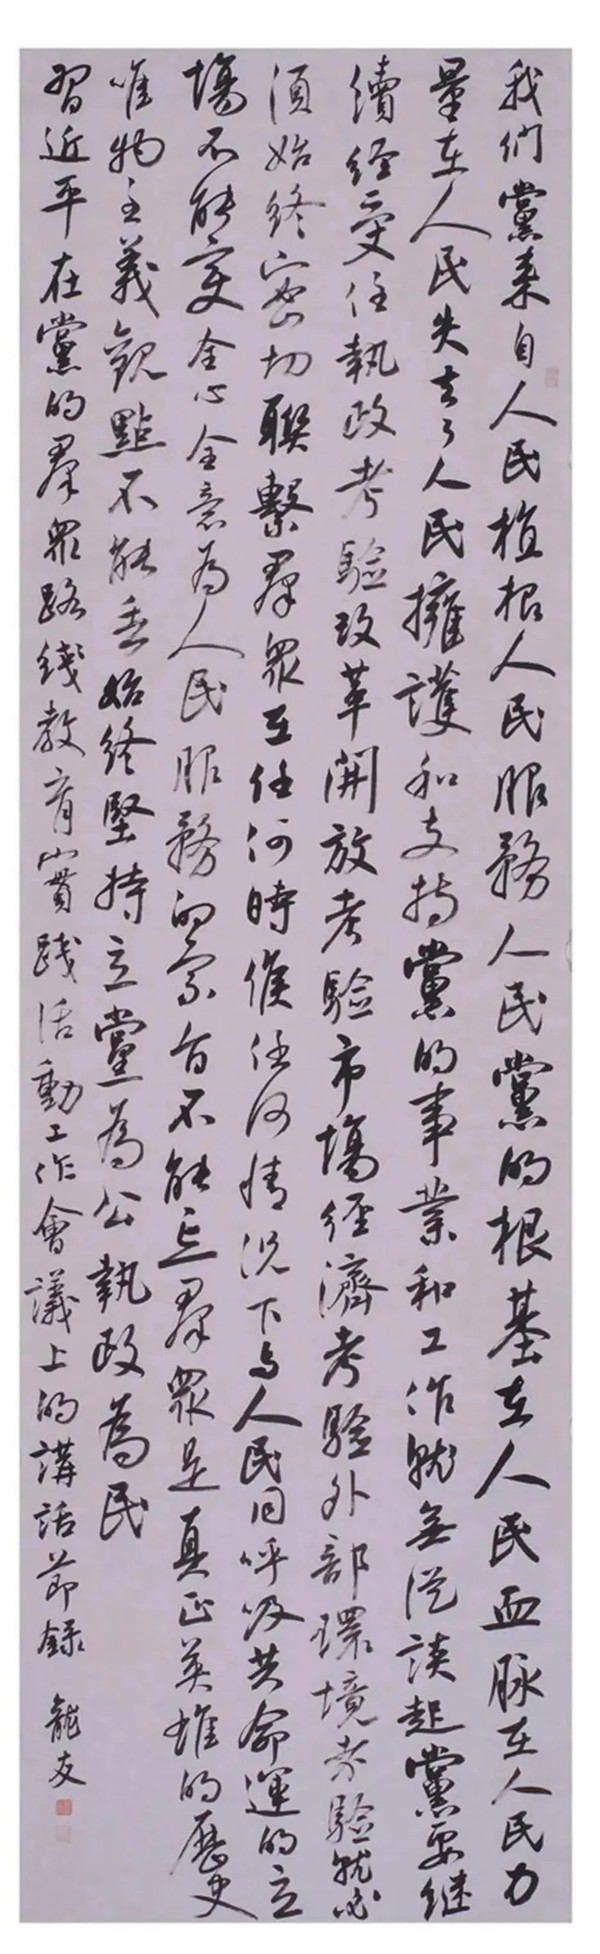 我们黨来自人民植根人民服務人民黨的根基在人民血脉在人民力
量在人民失去了人民擁護和支持黨的事業和工作就無従談起黨要继
續経受住執政考驗改革開放考驗市場経濟考驗外部環境考驗就必
須始终密切聯繫羣衆在任何時候任何情况下与人民同呼吸共命運的立
場不能变全心全意為人民服務的宗旨不能忘羣衆是真正英雄的歷史
唯物主義觀點不能丢始终堅持立黨為公執政為民
習近平在黨的羣衆路綫教育實踐活動工作會議上的講話節録 龍友